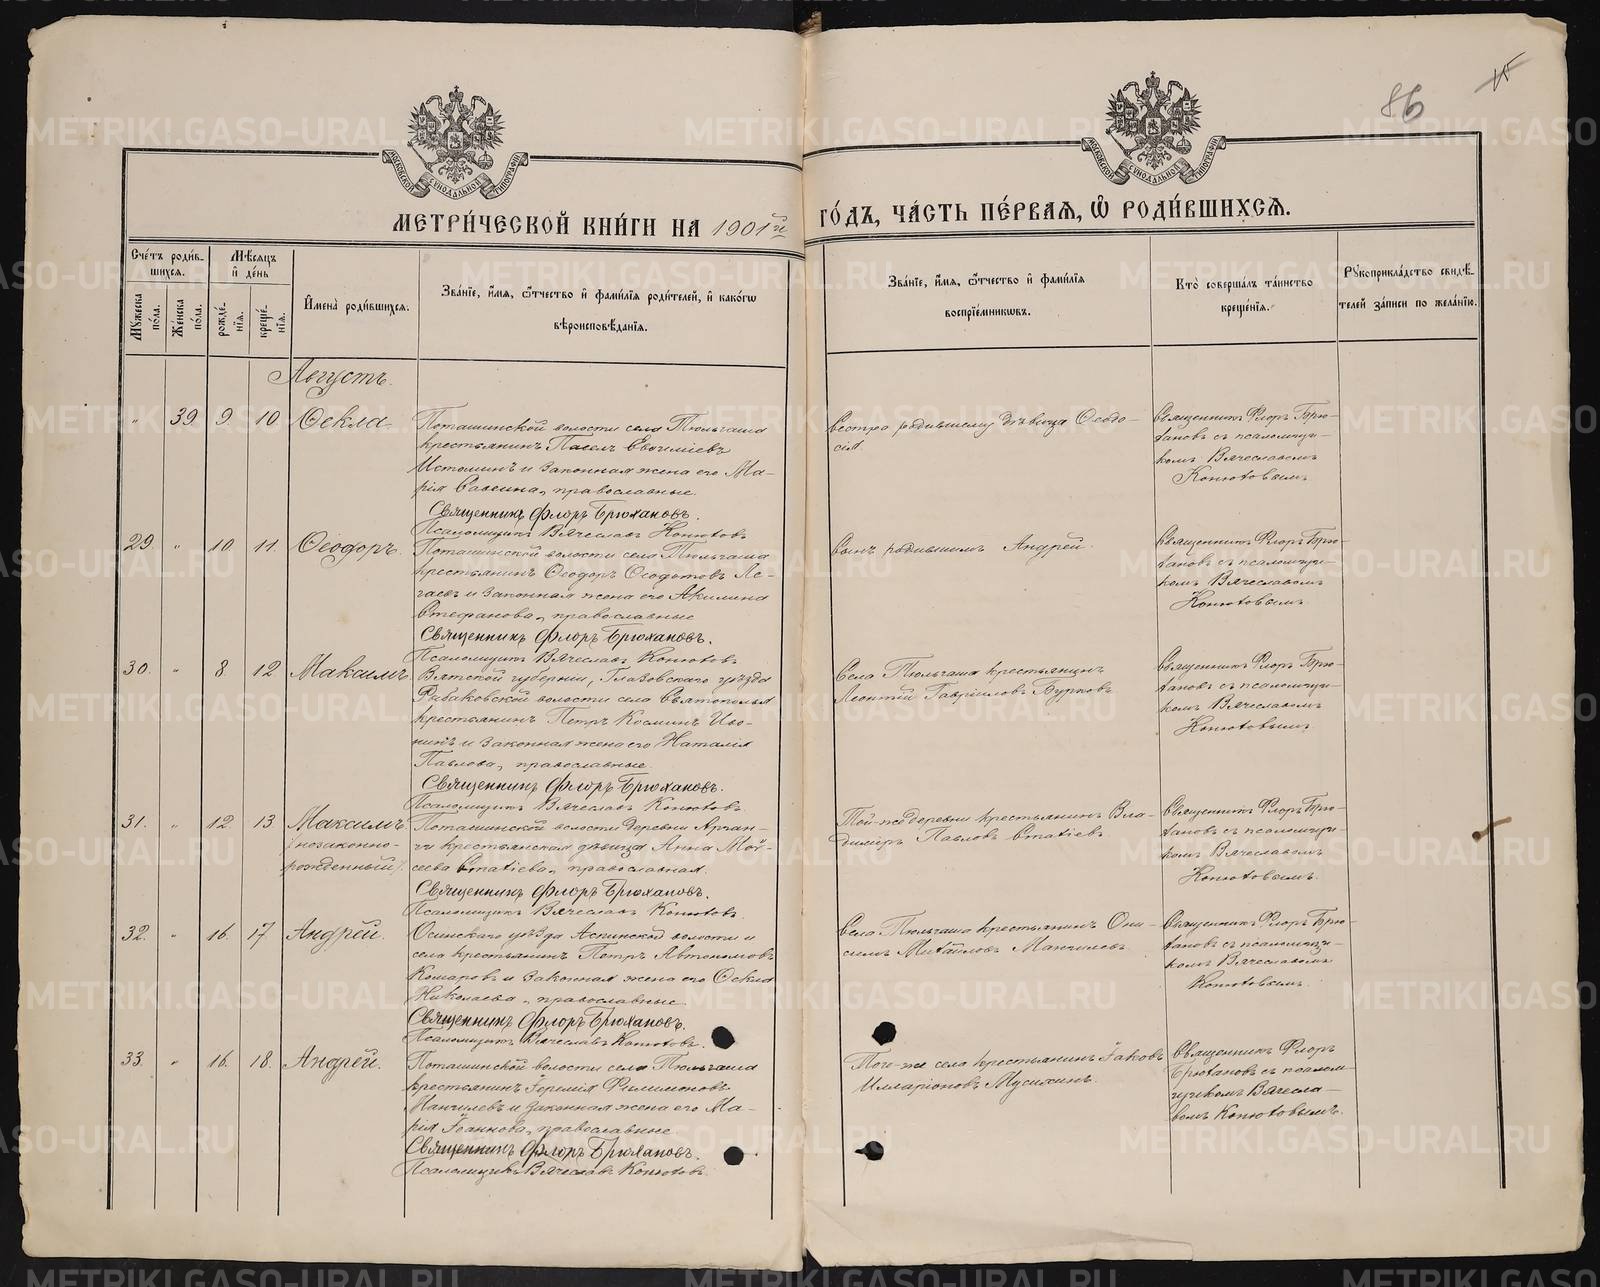 86
МОСКОВСКОЙ СѴНОДАЛЬНОЙ ТИПОГРАФІИ
МОСКОВСКОЙ СѴНОДАЛЬНОЙ ТИПОГРАФІИ
МЕТРИ́ЧЕСКОЙ КНИ́ГИ НА 1901й ГО́ДЪ, ЧА́СТЬ ПЕ́РВАЯ, Ѽ РОДИ́ВШИХСѦ.
Сче́тъ роди́в-
шихся.
Мѣсяцъ
и҆ де́нь
Мꙋжеска
по́ла.
Же́нска
по́ла.
рожде́-
нїя.
креще́-
нїя.
И҆мена̀ роди́вшихся.
Зва́нїе, и҆́мя, ѻ҆́тчество и҆ фамі́лїя роди́телей, и҆ како́гѡ
вѣроисповѣ́данїя.
Зва́нїе, и҆́мя, ѻ҆́тчество и҆ фамі́лїя
воспрїе́мникѡвъ.
Кто̀ соверша́лъ та́инство
креще́нїя.
Рꙋкоприкла́дство свидѣ́-
телей за́писи по жела́нїю.
Августъ.
" 39 9. 10. Ѳекла
Поташинской волости села Тюльгаша
крестьянинъ Павелъ Евѳиміевъ
Истоминъ и законная жена его Ма-
рія Саввина, православные.
Священникъ Флоръ Брюхановъ.
Псаломщикъ Вячеславъ Конютовъ
Сестра родившему дѣвица Ѳеодо-
сія.
Священникъ Флоръ Брю-
хановъ съ псаломщи-
комъ Вячеславомъ
Конютовымъ
29. " 10. 11. Ѳеодоръ.
Поташинской волости села Тюльгаша
крестьянинъ Ѳеодоръ Ѳеодотовъ
и законная жена его Акилина
Стефанова, православные
Священникъ Флоръ Брюхановъ.
Псаломщикъ Вячеславъ Конютовъ
Сынъ родившимъ Андрей.
Священникъ Флоръ Брю-
хановъ съ псаломщи-
комъ Вячеславомъ
Конютовымъ.
30. " 8. 12 Максимъ.
Вятской губерніи, Глазовскаго уѣзда
Рыбаковской волости села Святополья
крестьянинъ Петръ Косминъ Иво-
нинъ и законная жена его Наталія
Павлова, православные.
Священникъ Флоръ Брюхановъ.
Псаломщикъ Вячеславъ Конютовъ.
Села Тюльгаша крестьянинъ
Леонтій Гавріиловъ Бурковъ.
Священникъ Флоръ Брю-
хановъ съ псаломщи-
комъ Вячеславомъ
Конютовымъ
31. " 12. 13 Максимъ.
/незаконно-
рожденный/.
Поташинской волости деревни Артан-
чи крестьянская дѣвица Анна Мой-
сеева Статіева, православная.
Священникъ Флоръ Брюхановъ.
Псаломщикъ Вячеславъ Конютовъ.
Той-же деревни крестьянинъ Вла-
диміръ Павловъ Статіевъ.
Священникъ Флоръ Брю-
хановъ съ псаломщи-
комъ Вячеславомъ
Конютовымъ.
32. " 16. 17 Андрей.
Осинскаго уѣзда Аспинской волости и
села крестьянинъ Петръ Автономовъ
Комаровъ и законная жена его Ѳекла
Николаева, православные.
Священникъ Флоръ Брюхановъ.
Псаломщикъ Вячеславъ Конютовъ.
Села Тюльгаша крестьянинъ Они-
симъ Михайловъ Манчилевъ.
Священникъ Флоръ Брю-
хановъ съ псаломщи-
комъ Вячеславомъ
Конютовымъ.
33. " 16. 18. Андрей.
Поташинской волости села Тюльгаша
крестьянинъ Іеремія Филимоновъ
Манчилевъ и законная жена его Ма-
рія Іоаннова, православные
Священникъ Флоръ Брюхановъ.
Псаломщикъ Вячеславъ Конютовъ.
Того-же села крестьянинъ Іаковъ
Илларіоновъ Мусихинъ.
Священникъ Флоръ
Брюхановъ съ псалом-
щикомъ Вячесла-
вомъ Конютовымъ.
METRIKI.GASO-URAL.RU